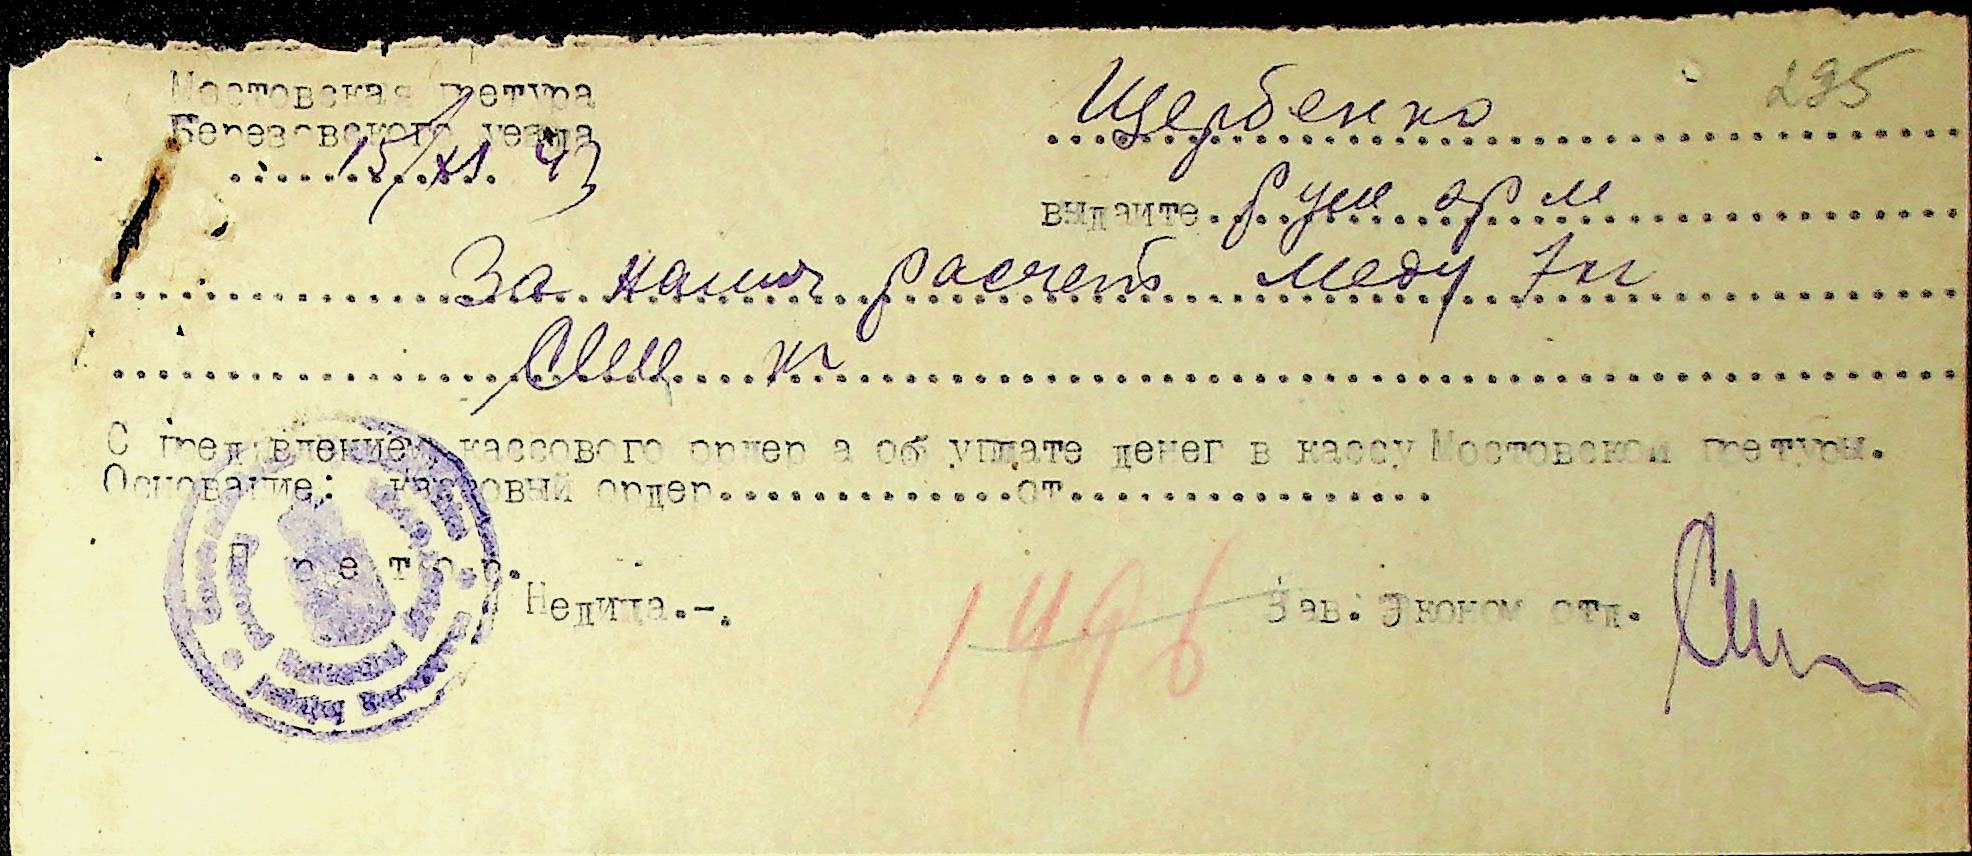 295
Мостовская претура
Березовского уезда
15/XI. 43
Щербенко
выдайте рум арм
За наши расчет меду 7 кг
кг
С пред'явлением кассового ордера об уплате денег в кассу Мостовской претуры.
Основание: кассовый ордер..............от.................
П р е т о р.
Недица.-.
1496
Зав. Эконом отд.